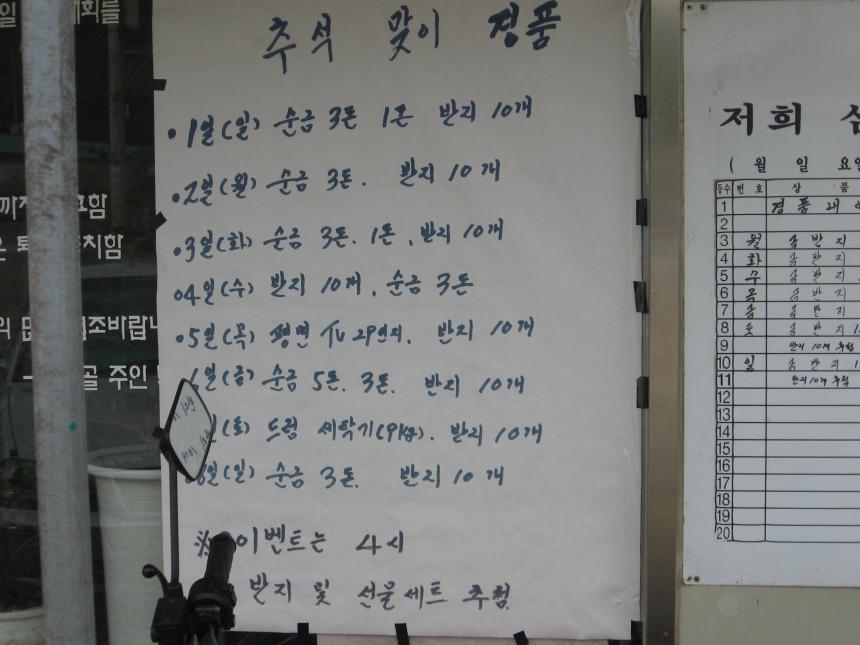 추석 맞이 경품
•1일(일) 순금 3돈 1돈 반지 10개
•2일(월) 순금 3돈. 반지 10개
•3일(화) 순금 3돈. 1돈, 반지 10개
•4일(수) 반지 10개, 순금 3돈
•5일(목) 평면 TV 29인치, 반지 10개
일(금) 순금 5돈. 3돈. 반지 10개
(토) 드럼 세탁기(9kg). 반지 10개
8일(일) 순금 3돈. 반지 10개
※ 이벤트는 4시
반지 및 선물세트 추첨
저희
( 월 일 요일
등수 번호 상 품
1
2
3 월 금반지
4 화 금반지
5 수 금반지
6 목 금반지
7 금 금반지
8 토 금반지
9 반지 10개 추첨
10 일 금반지
11 반지 10개 추첨
12
13
14
15
16
17
18
19
20
주인